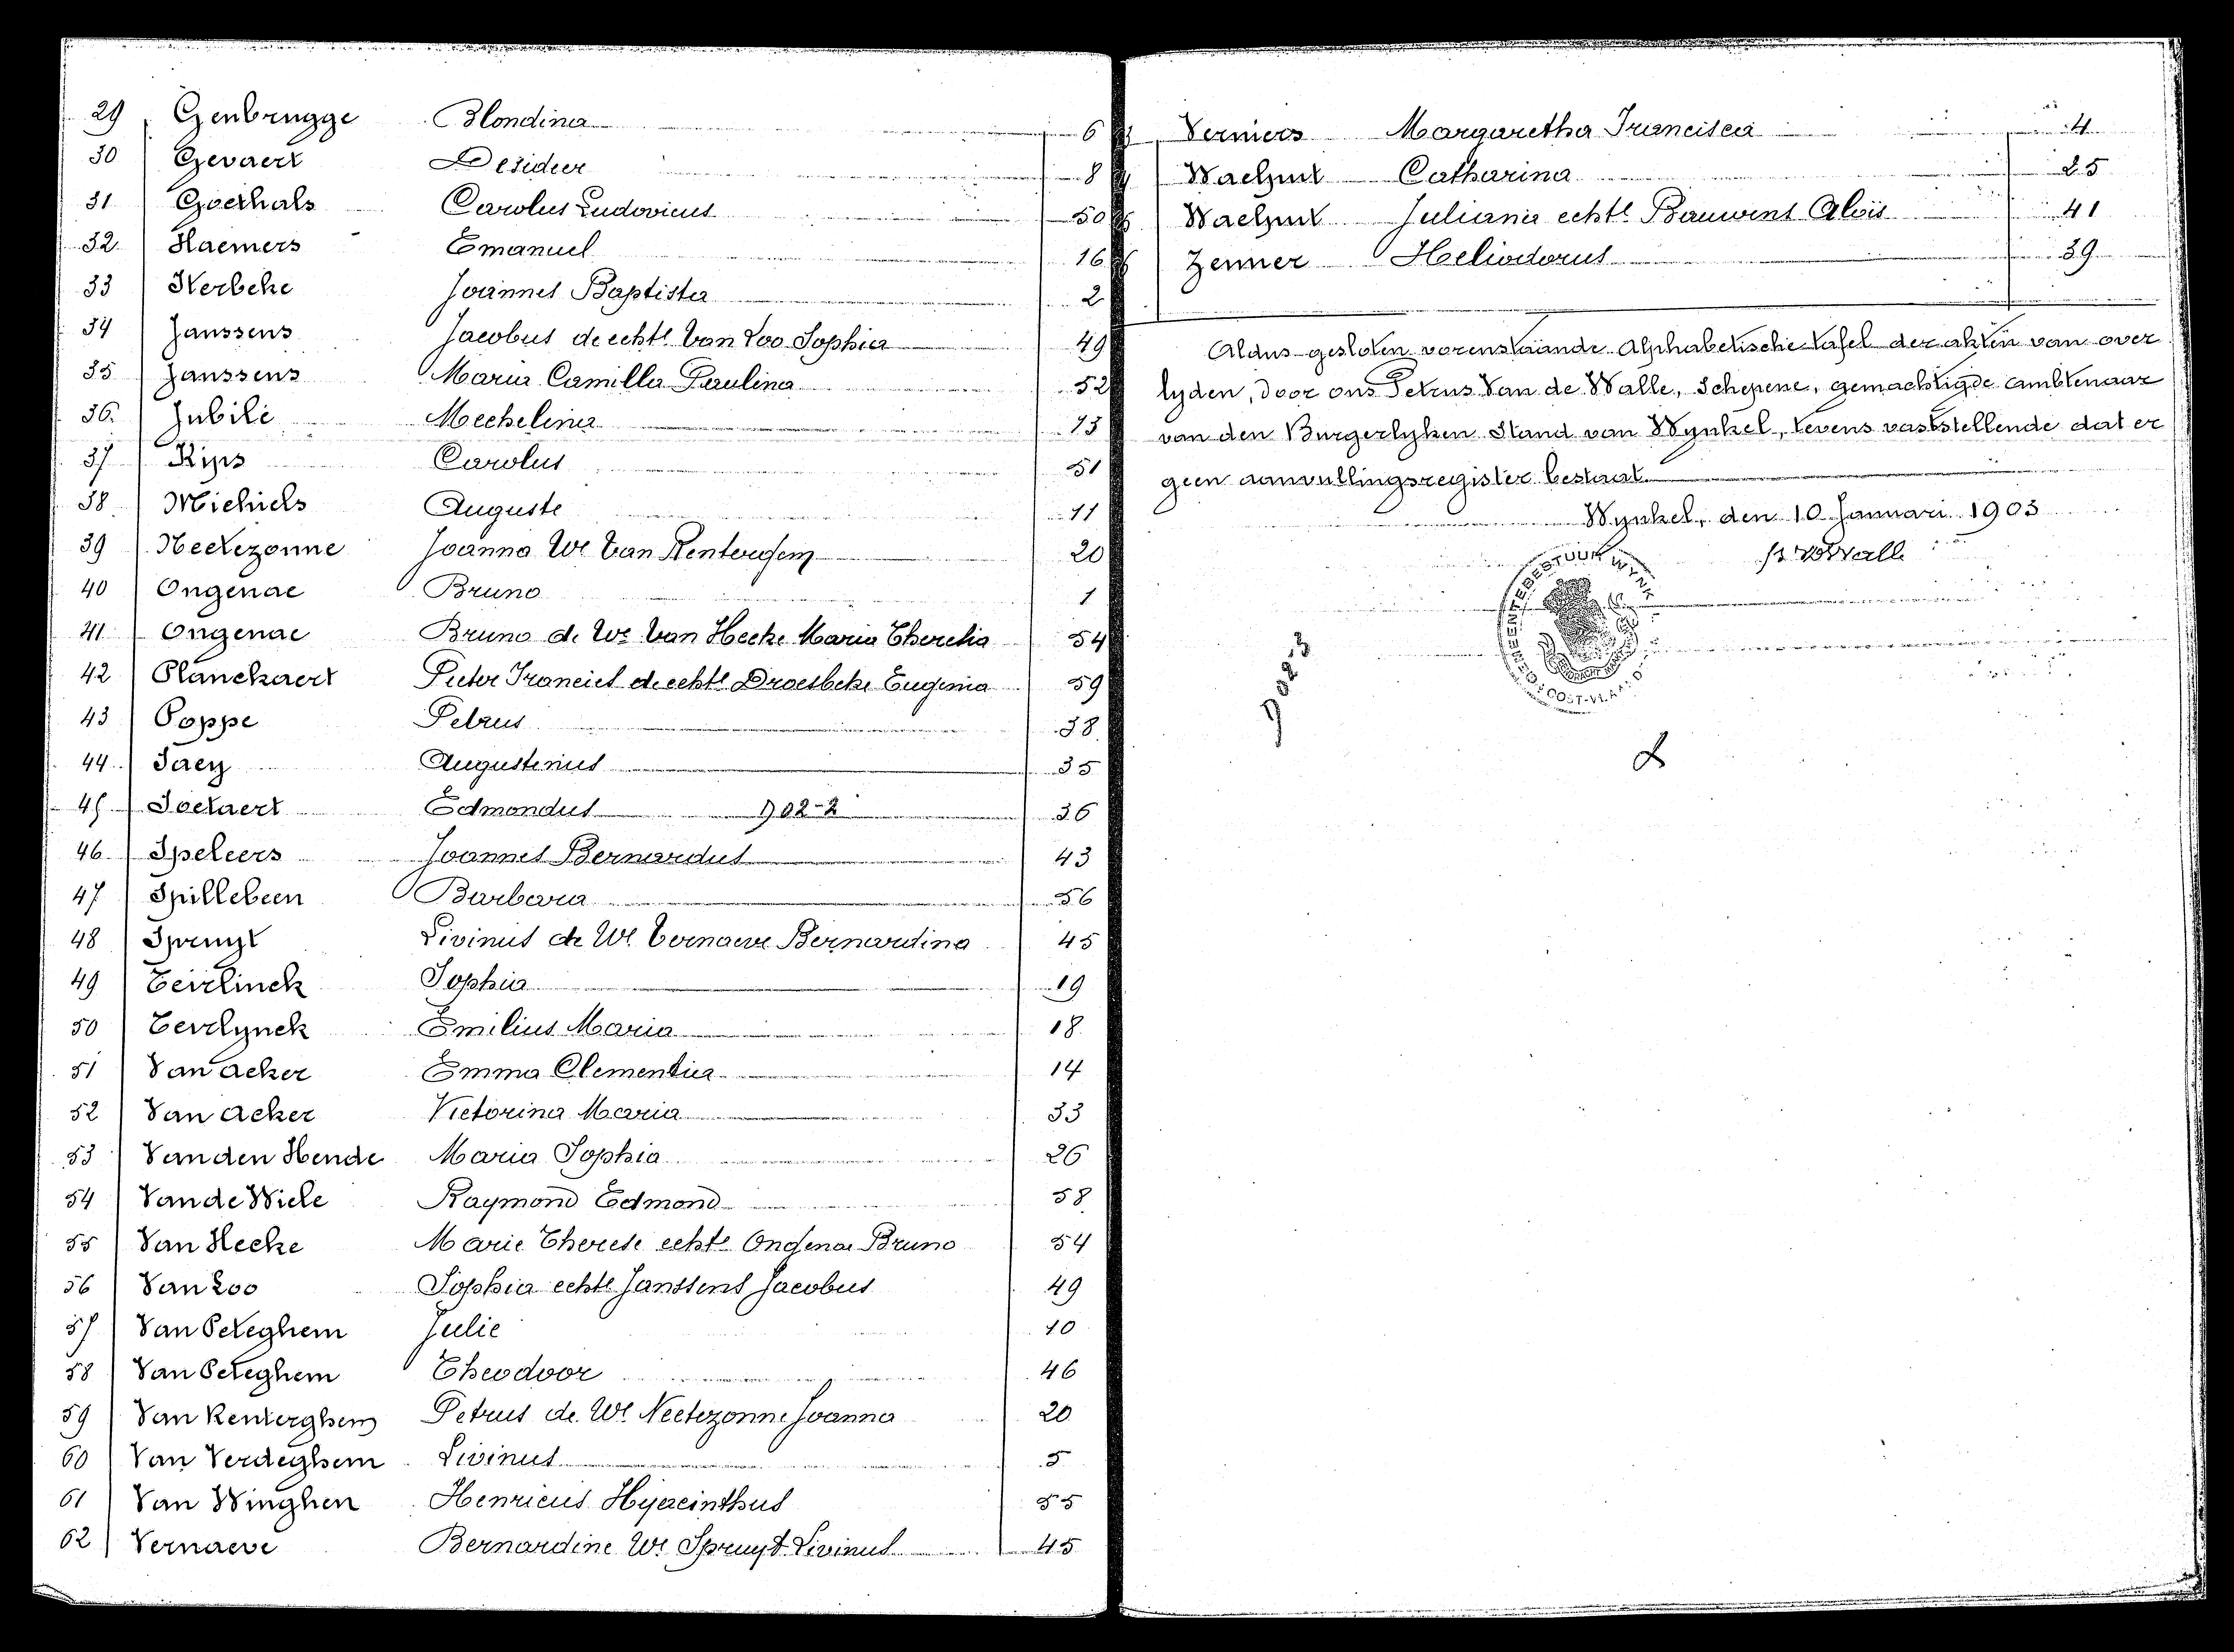 29 Genbrugge Blondina 6
30 Gevaert Desideer 8
31 Goethals Carolus Ludovicus 50
32 Haemers Emanuel 16
33 Kerbeke Joannes Baptista 2
34 Janssens Jacobus de echte Van Loo Sophia 49
35 Janssens Maria Camilla Paulina 52
36 Jubilé Mechelina 13
37 Kips Carolus 51
38 Michiels Auguste 11
39 Neetezonne Joanna We Van Renterghem 20
40 Ongenae Bruno 1
41 Ongenae Bruno de We Van Hecke Maria Theresia 54
42 Planckaert Pieter Francies de echte Droesbeke Eugenia 59
43 Poppe Petrus 38
44 Saey Augustinus 35
45 Soetaert Edmondus 902-2 36
46 Speleers Joannes Bernardus 43
47 Spillebeen Barbara 56
48 Spruyt Livinus de We Vernaeve Bernardina 45
49 Teirlinck Sophia 19
50 Teerlynck Emilius Maria 18
51 Van Acker Emma Clementia 14
52 Van Acker Victorina Maria 33
53 Van den Hende Maria Sophia 26
54 Van de Wiele Raymond Edmond 58
55 Van Hecke Marie Therese echte Ongenae Bruno 54
56 Van Loo Sophia echte Janssens Jacobus 49
57 Van Peteghem Julie 10
58 Van Peteghem Theodoor 46
59 Van Renterghem Petrus de We Neetezonne Joanna 20
60 Van Verdeghem Livinus 5
61 Van Winghen Henricus Hyacinthus 55
62 Vernaeve Bernardine We Spruyt Livinus 45
Verniers Margaretha Francisca 4
Waelput Catharina 25
Waelput Juliania echte Bauwens Aloïs 41
Zenner Heliodorus 39
Aldus gesloten vorenstaande Alphabetische tafel der akten van over
lyden, door ons Petrus Van de Walle, Schepene, gemachtigde ambtenaar
van den Burgerlyken Stand van Wynkel, tevens vaststellende dat er
geen aanvullingsregister bestaat.
Wynkel, den 10 Januari 1903
GEMEENTEBESTUUR WYNK
OOST-VLAAND
902-3